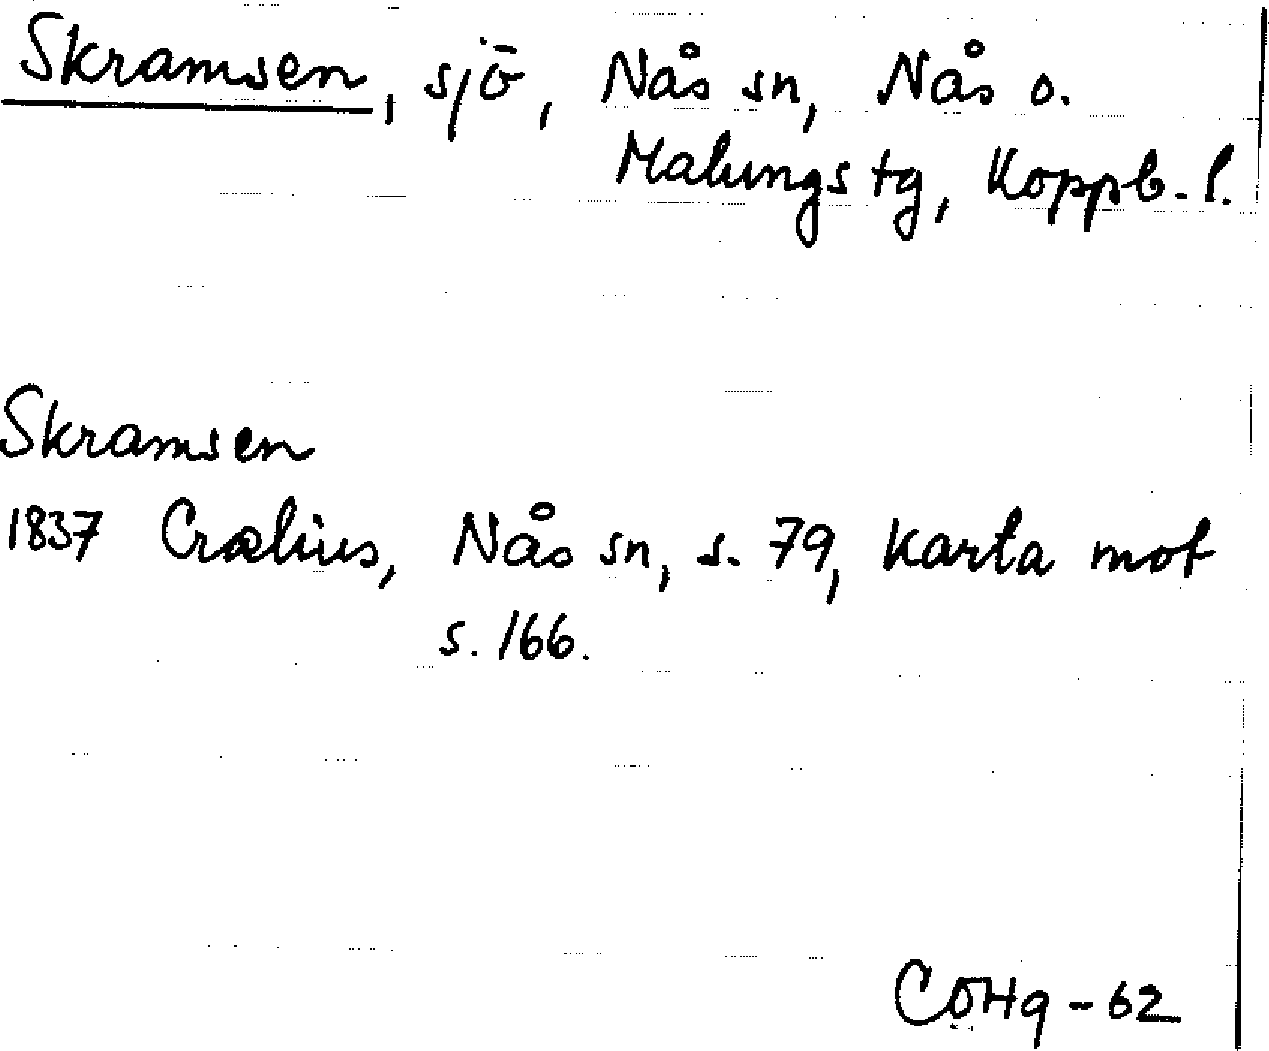 Skramsen, sjö, Nås sn, Nås o.
Malungs tg, Koppb. l.
Skramsen
1837 Crælius, Nås sn, s. 79, Karta mot
s. 166.
COHg-62